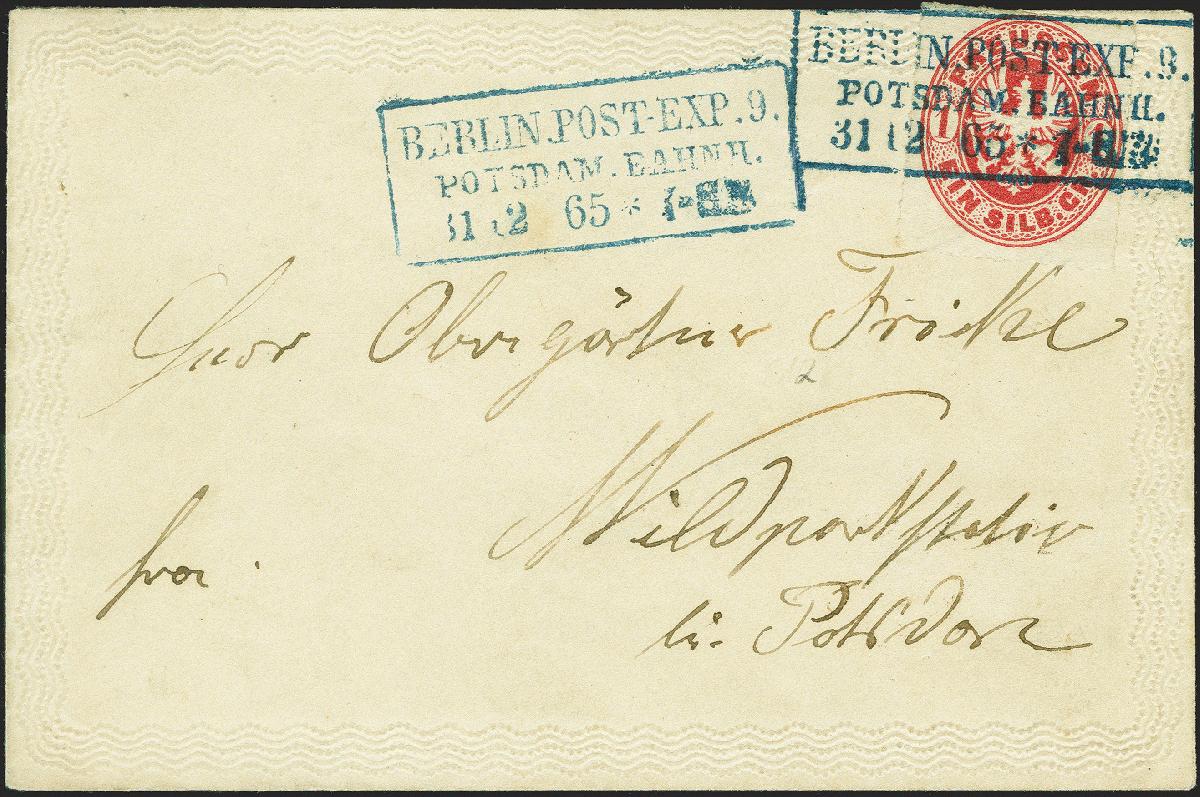 BERLIN.POST-EXP.9.
POTSDAM.BAHNH.
31 12 65 * 7-8
BERLIN.POST-EXP.9.
POTSDAM.BAHNH.
31 12 65 * 7-8
PREUSSEN
1 1
EIN SILB.GR.
Obergärtner Fricke
Wildparkstation
bei Potsdam
2